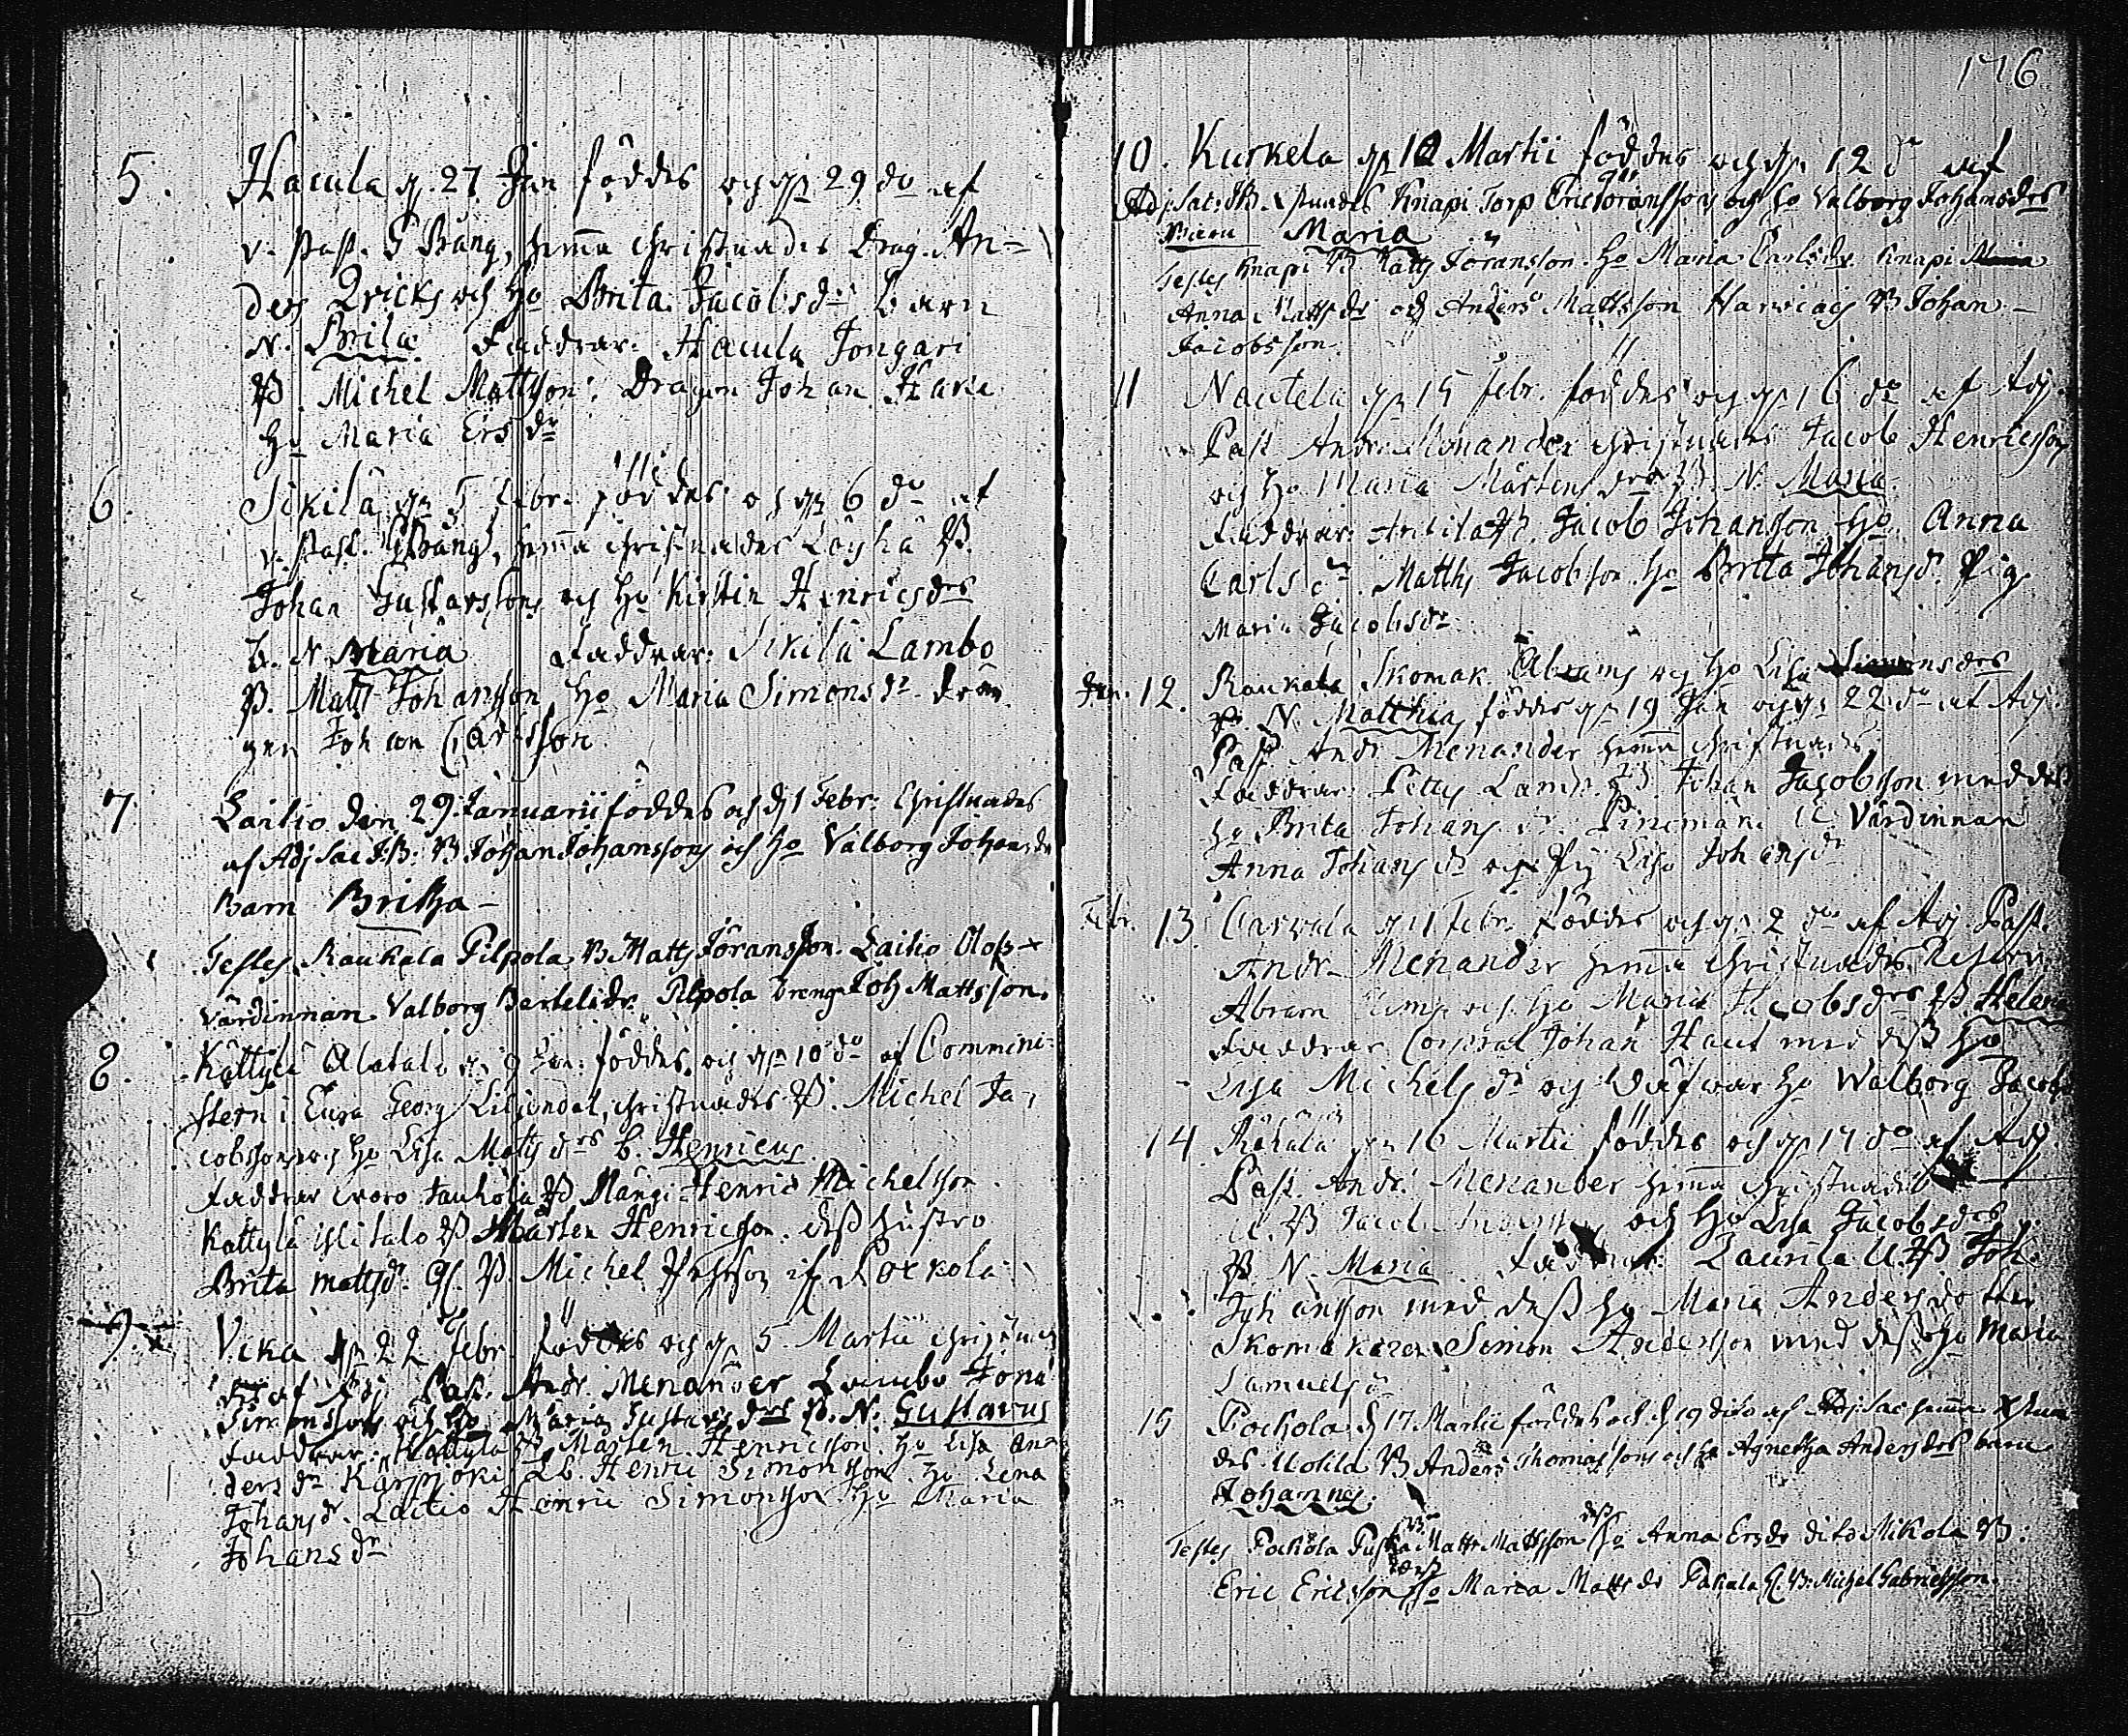 5. Hacula d. 27 Jan föddes och d. 29 do af
v. Past. G Bang, hemma christnades Drag. An=
ders Qvicks och Ho Brita Jacobs dr barn
N. Brita Faddrar: Hacula Jongari
B. Michel Mattsson: Dragon Johan Hare
Ho Maria Ers dr
6. Sikilä d. 5 Febr. föddes och d. 6 do af
v. Past. G Bang, hemma christnades Löyhä B.
Johan Gustafssons och Ho Kirstin Henricsdrs
b. N Maria Faddrar: Sikilä Lambo
B. Matt Johansson Ho Maria Simons dr
Johan Carlsson
7. Laitio den 29. Januarii föddes och d 1 Febr: Christnades
af Adj Sac J.B: B Johan Johanssons och Ho Valborg Johansdrs
Barn Britha -
Testes Raukala Pilpola B Matts Jöransson. Laitio Olofs
värdinnan Valborg Bertelsdr. Pilpola Dreng Joh Mattsson.
8. Kättylä Alatalo d. 9 Jan. föddes, och d. 10 do af Commini-
stern i Eura Georg Liljendal, christnades B. Michel Ja-
cobssons och Ho Lisa Matts drs b. Henricus.
Faddrar woro B Henric Michelsson
Kättylä Ylitalo B Mårten Henricsson. dess hustro
Brita Matts dr. B. Michel
9. Vika d. 22 Febr. föddes och d. 5 Martii christna-
des af Adj Past. Andr. Menander Lambo
Simonssons och Ho Maria Gustafs drs B. N. Gustavus
Faddrar: Kättylä B Mårten Henricsson. Ho Lisa An-
ders dr Henric Simonsson Ho Lena
Johans dr. Laitio Henric Simonsson Ho Maria
Johans dr
176
10. Kurkela d. 10 Martii föddes och d. 12 do af
Adj: Sac: JB. Xstnades Knapi Torp Eric Göranssons och Ho Valborg Johansdrs
Barn Maria
Testes Knapi B Matts Jöransson. Ho Maria Carlsdr. Knapi
Anna Mattsdr och Anders Mattsson B Johan
Jacobsson.
11 Nautela d. 15 Febr. föddes och d. 16 do af Adj.
Past. Andr. Menander christnades Jacob Henricssons
och Ho Maria Mårtens drs B. N. Maria.
Faddrar: B. Jacob Johansson Ho. Anna
Carls dr. Matths Jacobsson Ho Brita Johans dr. Pig.
Maria Jacobs dr
Jan. 12. Raukala Skomak. Abrams och Ho Lisa Simons drs
B. N. Matthias föddes d. 19 Jan och d. 22 do af Adj.
Past. Andr. Menander hemma christnades,
Faddrar: B. Johan Jacobsson med dess
Ho Brita Johans dr. Värdinnan
Anna Johans dr och Pig Lisa Johans dr
Febr. 13 d. 1 Febr. föddes och d. 2 do af Adj. Past.
Andr. Menander hemma christnades
Abram och Ho Maria Jacobs drs B. Helena
Faddrar Corporal Johan med dess Ho
Lisa Michels dr och Ho Walborg Jacobs
14 d. 16 Martii föddes och d. 17 do af Adj.
Past. Andr. Menander hemma christnades
B Jacob och Ho Lisa Jacobs drs
B. N. Maria Faddrar: Laurila U. B Joh.
Johansson med dess Ho Maria Anders dotter
Skomakaren Simon Andersson med dess Ho Maria
Samuels dr
15 Pochola d 17 Martii föddes och d 19 dito af Adj: Sac hemma Xstna
des B Anders Thomassons och Ho Agnetha Andersdrs barn
Johannes.
Testes Pochola B Matts Mattsson dess Ho Anna Ersdr dito Mikola B:
Eric Ericsson dess Ho Maria Matts dr B: Michel Gabrielsson.